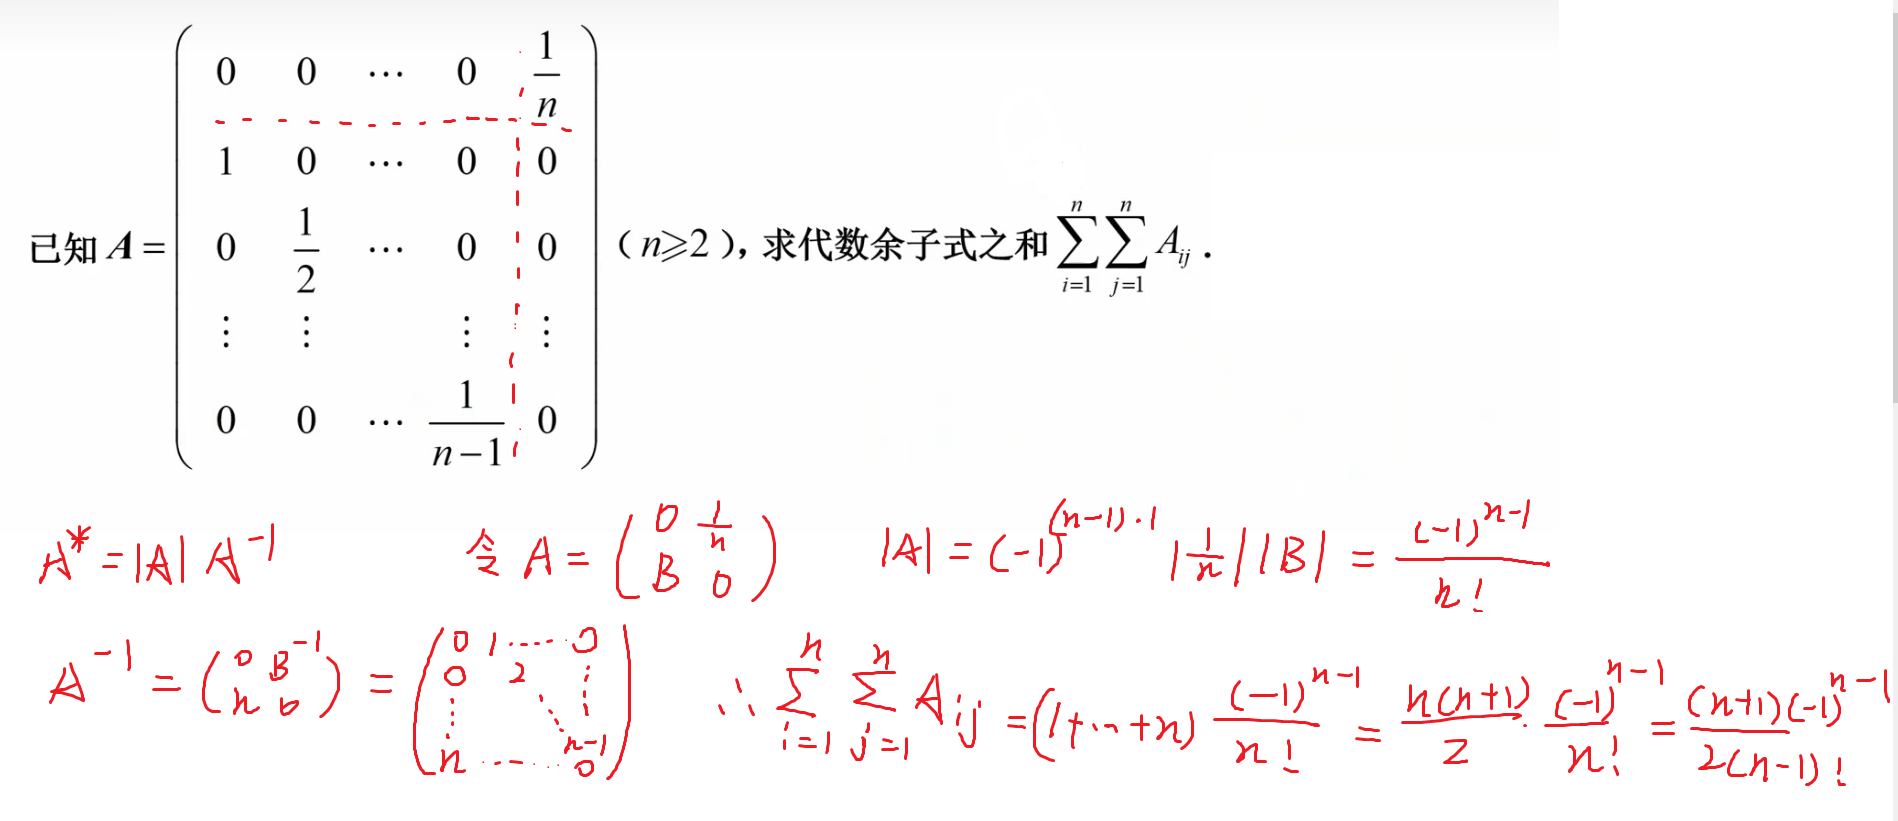 0 0 ⋯ 0 1/n
1 0 ⋯ 0 0
已知 A = 0 1/2 ⋯ 0 0 （n≥2），求代数余子式之和 ∑_{i=1}^{n} ∑_{j=1}^{n} A_{ij}．
⋮ ⋮ ⋮ ⋮
0 0 ⋯ 1/(n−1) 0
A* = |A| A^{-1} 令 A = (0 1/n; B 0) |A| = (-1)^{(n-1)·1} |1/n| |B| = (-1)^{n-1}/n!
A^{-1} = (0 B^{-1}; n 0) = (0 1 ⋯ 0; 0 2 ⋮; ⋮ ⋱ n-1; n ⋯ 0) ∴ ∑_{i=1}^{n} ∑_{j=1}^{n} A_{ij} = (1+⋯+n) (-1)^{n-1}/n! = n(n+1)/2 · (-1)^{n-1}/n! = (n+1)(-1)^{n-1}/2(n-1)!